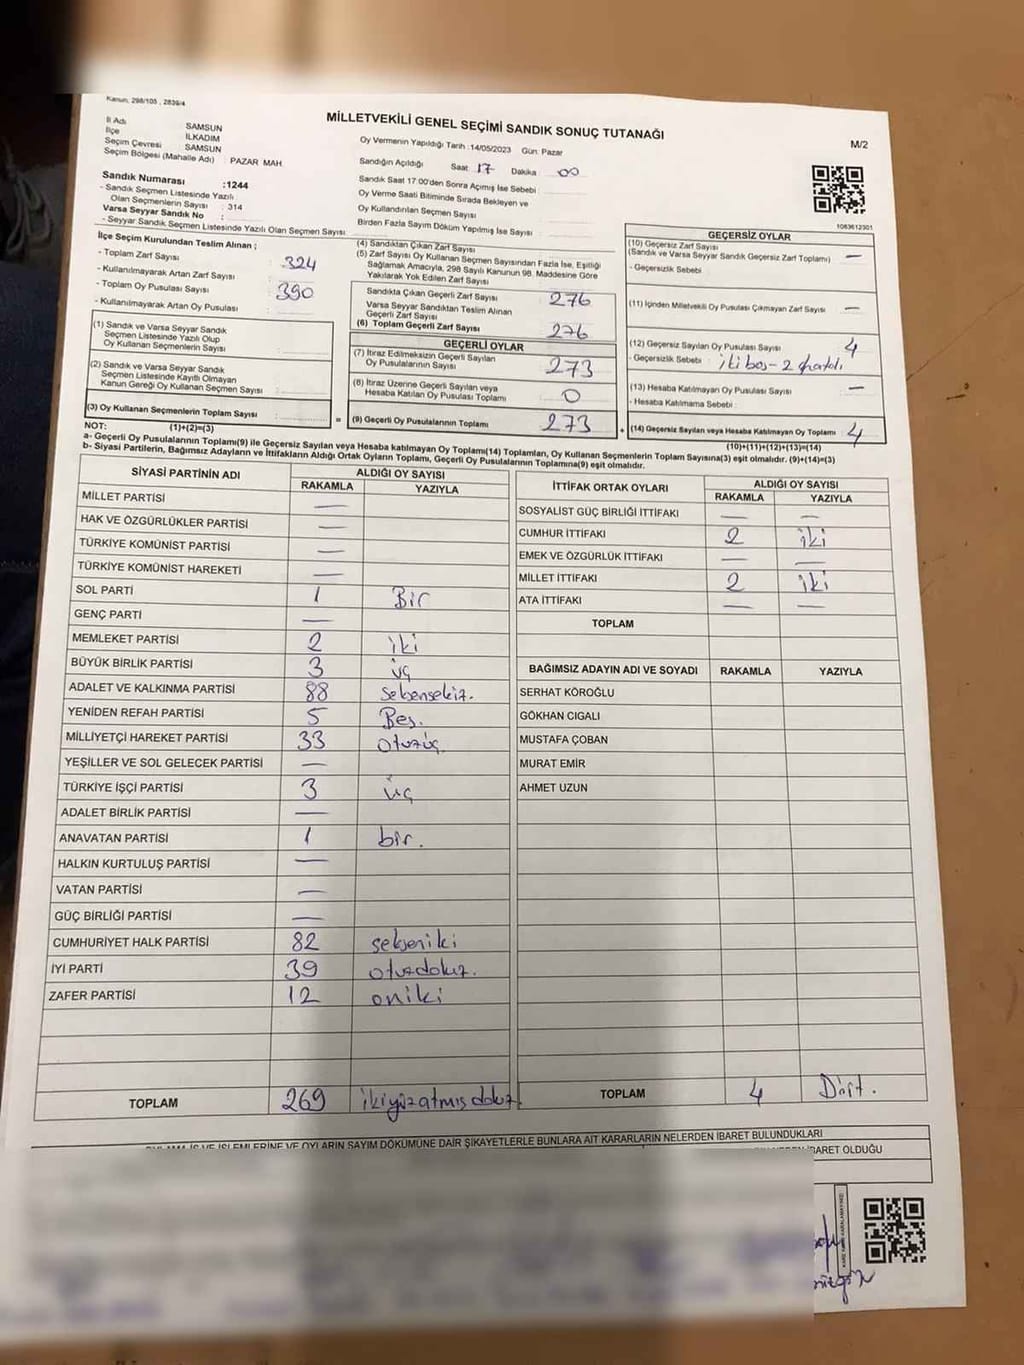 Kanun, 298/105 , 2839/4
MİLLETVEKİLİ GENEL SEÇİMİ SANDIK SONUÇ TUTANAĞI
M/2
İl Adı SAMSUN
İlçe İLKADIM
Seçim Çevresi SAMSUN
Seçim Bölgesi (Mahalle Adı) : PAZAR MAH
Sandık Numarası :1244
- Sandık Seçmen Listesinde Yazılı
Olan Seçmenlerin Sayısı : 314
Varsa Seyyar Sandık No :
- Seyyar Sandık Seçmen Listesinde Yazılı Olan Seçmen Sayısı :
Oy Vermenin Yapıldığı Tarih :14/05/2023 Gün: Pazar
Sandığın Açıldığı Saat 17 Dakika 00
Sandık Saat 17:00'den Sonra Açımış İse Sebebi :
Oy Verme Saati Bitiminde Sırada Bekleyen ve
Oy Kullandırılan Seçmen Sayısı
Birden Fazla Sayım Döküm Yapılmış İse Sayısı :
1083612301
İlçe Seçim Kurulundan Teslim Alınan ;
- Toplam Zarf Sayısı : 324
- Kullanılmayarak Artan Zarf Sayısı :
- Toplam Oy Pusulası Sayısı : 390
- Kullanılmayarak Artan Oy Pusulası :
(1) Sandık ve Varsa Seyyar Sandık
Seçmen Listesinde Yazılı Olup
Oy Kullanan Seçmenlerin Sayısı :
(2) Sandık ve Varsa Seyyar Sandık
Seçmen Listesinde Kayıtlı Olmayan
Kanun Gereği Oy Kullanan Seçmen Sayısı :
(3) Oy Kullanan Seçmenlerin Toplam Sayısı :
NOT: (1)+(2)=(3)
(4) Sandıktan Çıkan Zarf Sayısı :
(5) Zarf Sayısı Oy Kullanan Seçmen Sayısından Fazla İse, Eşitliği
Sağlamak Amacıyla, 298 Sayılı Kanunun 98. Maddesine Göre
Yakılarak Yok Edilen Zarf Sayısı :
Sandıkta Çıkan Geçerli Zarf Sayısı 276
Varsa Seyyar Sandıktan Teslim Alınan
Geçerli Zarf Sayısı
(6) Toplam Geçerli Zarf Sayısı 276
GEÇERLİ OYLAR
(7) İtiraz Edilmeksizin Geçerli Sayılan
Oy Pusulalarının Sayısı : 273
(8) İtiraz Üzerine Geçerli Sayılan veya
Hesaba Katılan Oy Pusulası Toplamı 0
= (9) Geçerli Oy Pusulalarının Toplamı 273 +
GEÇERSİZ OYLAR
(10) Geçersiz Zarf Sayısı
(Sandık ve Varsa Seyyar Sandık Geçersiz Zarf Toplamı) : —
- Geçersizlik Sebebi
(11) İçinden Milletvekili Oy Pusulası Çıkmayan Zarf Sayısı : —
(12) Geçersiz Sayılan Oy Pusulası Sayısı : 4
- Geçersizlik Sebebi : iki boş - 2
(13) Hesaba Katılmayan Oy Pusulası Sayısı : —
- Hesaba Katılmama Sebebi :
(14) Geçersiz Sayılan veya Hesaba Katılmayan Oy Toplamı 4
(10)+(11)+(12)+(13)=(14)
a- Geçerli Oy Pusulalarının Toplamı(9) ile Geçersiz Sayılan veya Hesaba katılmayan Oy Toplamı(14) Toplamları, Oy Kullanan Seçmenlerin Toplam Sayısına(3) eşit olmalıdır. (9)+(14)=(3)
b- Siyasi Partilerin, Bağımsız Adayların ve İttifakların Aldığı Ortak Oyların Toplamı, Geçerli Oy Pusulalarının Toplamına(9) eşit olmalıdır.
SİYASİ PARTİNİN ADI ALDIĞI OY SAYISI
RAKAMLA YAZIYLA
MİLLET PARTİSİ —
HAK VE ÖZGÜRLÜKLER PARTİSİ —
TÜRKİYE KOMÜNİST PARTİSİ —
TÜRKİYE KOMÜNİST HAREKETİ —
SOL PARTİ 1 Bir
GENÇ PARTİ —
MEMLEKET PARTİSİ 2 iki
BÜYÜK BİRLİK PARTİSİ 3 üç
ADALET VE KALKINMA PARTİSİ 88 seksensekiz.
YENİDEN REFAH PARTİSİ 5 Beş.
MİLLİYETÇİ HAREKET PARTİSİ 33 otuzüç
YEŞİLLER VE SOL GELECEK PARTİSİ —
TÜRKİYE İŞÇİ PARTİSİ 3 üç
ADALET BİRLİK PARTİSİ —
ANAVATAN PARTİSİ 1 bir.
HALKIN KURTULUŞ PARTİSİ —
VATAN PARTİSİ —
GÜÇ BİRLİĞİ PARTİSİ —
CUMHURİYET HALK PARTİSİ 82 sekseniki
İYİ PARTİ 39 otuzdokuz.
ZAFER PARTİSİ 12 oniki
TOPLAM 269 ikiyüzatmışdokuz.
İTTİFAK ORTAK OYLARI ALDIĞI OY SAYISI
RAKAMLA YAZIYLA
SOSYALİST GÜÇ BİRLİĞİ İTTİFAKI — —
CUMHUR İTTİFAKI 2 iki
EMEK VE ÖZGÜRLÜK İTTİFAKI — —
MİLLET İTTİFAKI 2 iki
ATA İTTİFAKI — —
TOPLAM
BAĞIMSIZ ADAYIN ADI VE SOYADI RAKAMLA YAZIYLA
SERHAT KÖROĞLU
GÖKHAN CIGALI
MUSTAFA ÇOBAN
MURAT EMİR
AHMET UZUN
TOPLAM 4 Dört.
İŞLEMLERİNE VE OYLARIN SAYIM DÖKÜMÜNE DAİR ŞİKAYETLERLE BUNLARA AİT KARARLARIN NELERDEN İBARET BULUNDUKLARI
İBARET OLDUĞU